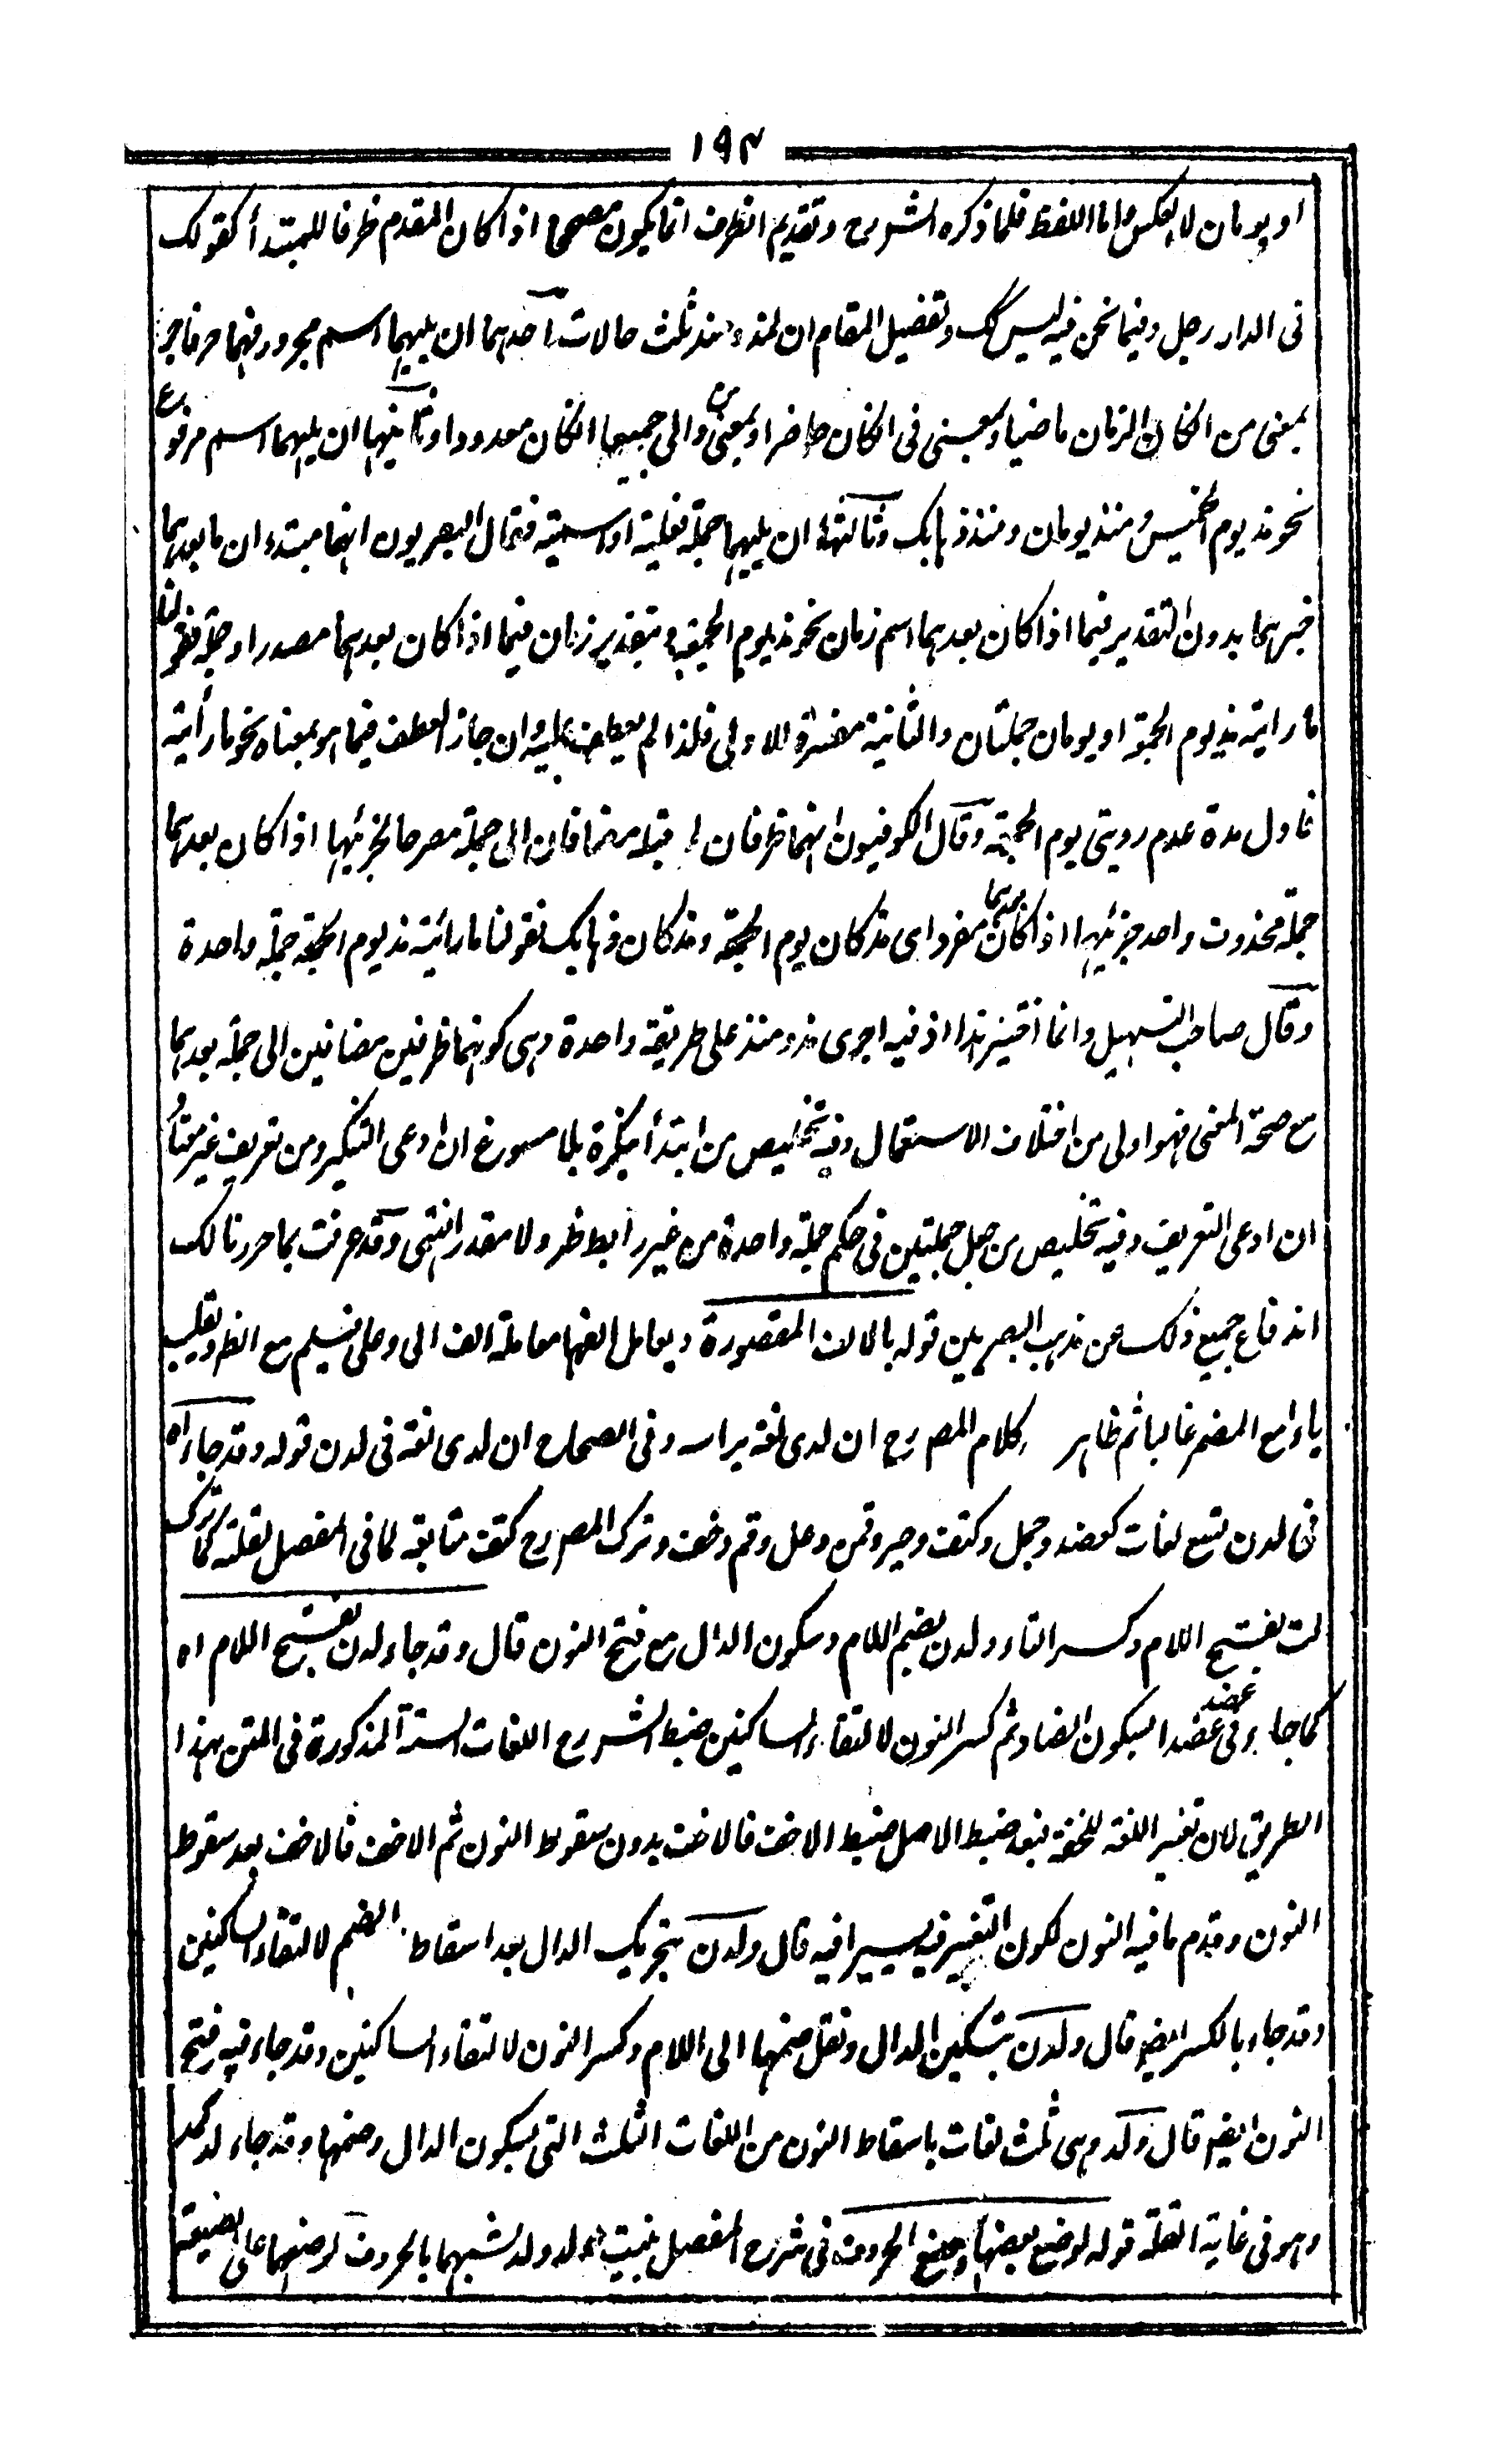 ١٩٣
او يومان لا العكس واما اللفظ فلما ذكره الشرح وتقديم الظرف انما يكون مصححا اذا كان المقدم ظرفا للمبتدأ كقولك
فى الدار رجل وفيما نحن فيه ليس كك وتفصيل المقام ان لمذ ومنذ ثلث حالات احدهما ان يليهما اسم مجرور فهما حرفا جر
بمعنى من انكان الزمان ماضيا وبمعنى فى انكان حاضرا وبمعنى من والى جميعا انكان معدودا وثانيتها ان يليهما اسم مرفوع
نحو مذ يوم الخميس ومنذ يومان ومنذ ذهابك وثالثتها ان يليهما جملة فعلية او اسمية فقال البصريون انهما مبتدءان ما بعدهما
خبرهما بدون التقدير فيما اذا كان بعدهما اسم زمان نحو مذ يوم الجمعة وبتقدير زمان فيما اذا كان بعدهما مصدر او جملة فقولنا
ما رايته مذ يوم الجمعة او يومان جملتان والثانية مفسرة للاولى فلذا لم يعطف عليه وان جاز العطف فيما هو بمعناه نحو ما رأيته
فاول مدة عدم رويتى يوم الجمعة وقال الكوفيون انهما ظرفان لما قبله مضافان الى جملة مصرحا بجزئيها اذا كان بعدهما
جملة محذوف واحد جزئيها اذا كان بعدهما مفرد اى مذ كان يوم الجمعة ومذ كان ذهابك فقولنا ما رائيته مذ يوم الجمعة جملة واحدة
وقال صاحب التسهيل وانما اختير هذا اذ فيه اجرى مذ ومنذ على طريقة واحدة وهى كونهما ظرفين مضافين الى جملة بعدهما
مع صحة المعنى فهو اولى من اختلاف الاستعمال وفيه تخليص من ابتدأ بنكرة بلا مسوغ ان ادعى التنكير ومن تعريف غير معتاد
ان ادعى التعريف وفيه تخليص من جعل جملتين فى حكم جملة واحدة من غير رابط ظهر ولا مقدر انتهى وقد عرفت بما حررنا لك
اندفاع جميع ذلك عن مذهب البصريين قوله بالالف المقصورة ويعامل الفها معاملة الف الى وعلى فيسلم مع الظهر ويقلب
ياء مع المضمر غالبا ثم ظاهر كلام المص رح ان لدى لغة براسه وفى الصحاح ان لدى لغة فى لدن قوله وقد جاء اه
فى لدن تسع لغات كعضد وجمل وكتف وجير وقمن وعل وقم وخف وترك المص رح كتف متابعة لما فى المفصل لقلته كما ترك
لت بفتح اللام وكسر التاء ولدن بضم اللام وسكون الدال مع فتح النون قال وقد جاء لدن بفتح اللام اه
كما جاء فى عضد عضدا بسكون الضاد ثم كسر النون لالتقاء الساكنين ضبط الشرح اللغات الستة المذكورة فى المتن بهذا
الطريق لان تغيير اللغة للخفة فبعد ضبط الاصل ضبط الاخف فالاخف بدون سقوط النون ثم الاخف فالاخف بعد سقوط
النون وقدم ما فيه النون لكون التغيير فيه يسيرا فيه قال ولدن بتحريك الدال بعد اسقاط الضم لالتقاء الساكنين
وقد جاء بالكسر ايضو قال ولدن بتسكين الدال ونقل ضمها الى اللام وكسر النون لالتقاء الساكنين وقد جاء فيه فتح
النون ايضو قال ولد وهى ثلث لغات باسقاط النون من اللغات الثلث التى بسكون الدال وضمها وقد جاء لد كمد
وهو فى غاية القلة قوله لوضع بعضها وضع الحروف فى شرح المفصل بنيت لد ولد لشبهما بالحروف لوضعهما على صيغة